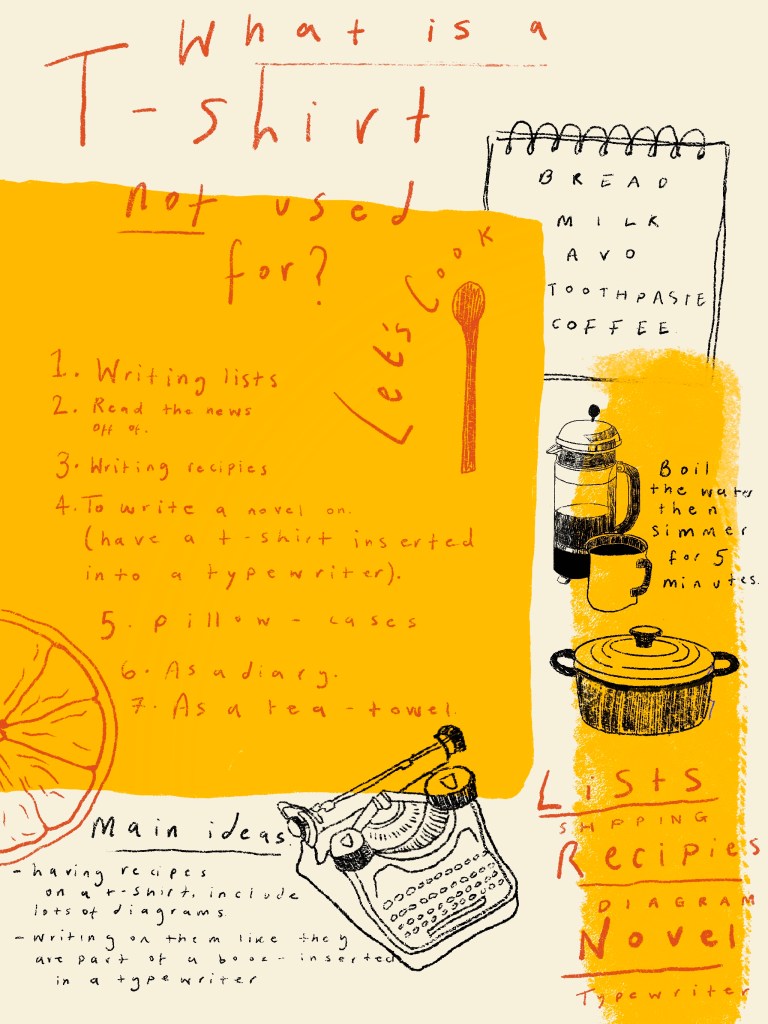 What is a
T-shirt
not used
for?
Let's Cook
BREAD
MILK
AVO
TOOTHPASTE
COFFEE
1. Writing lists
2. Read the news
off of.
3. Writing recipies
4. To write a novel on.
(have a t-shirt inserted
into a typewriter).
5. pillow-cases
6. As a diary.
7. As a tea-towel.
Boil
the water
then
simmer
for 5
minutes.
Main ideas.
- having recipes
on a t-shirt, include
lots of diagrams.
- writing on them like they
are part of a book - inserted
in a typewriter
Lists
SHPPING
Recipies
DIAGRAM
Novel
Typewriter